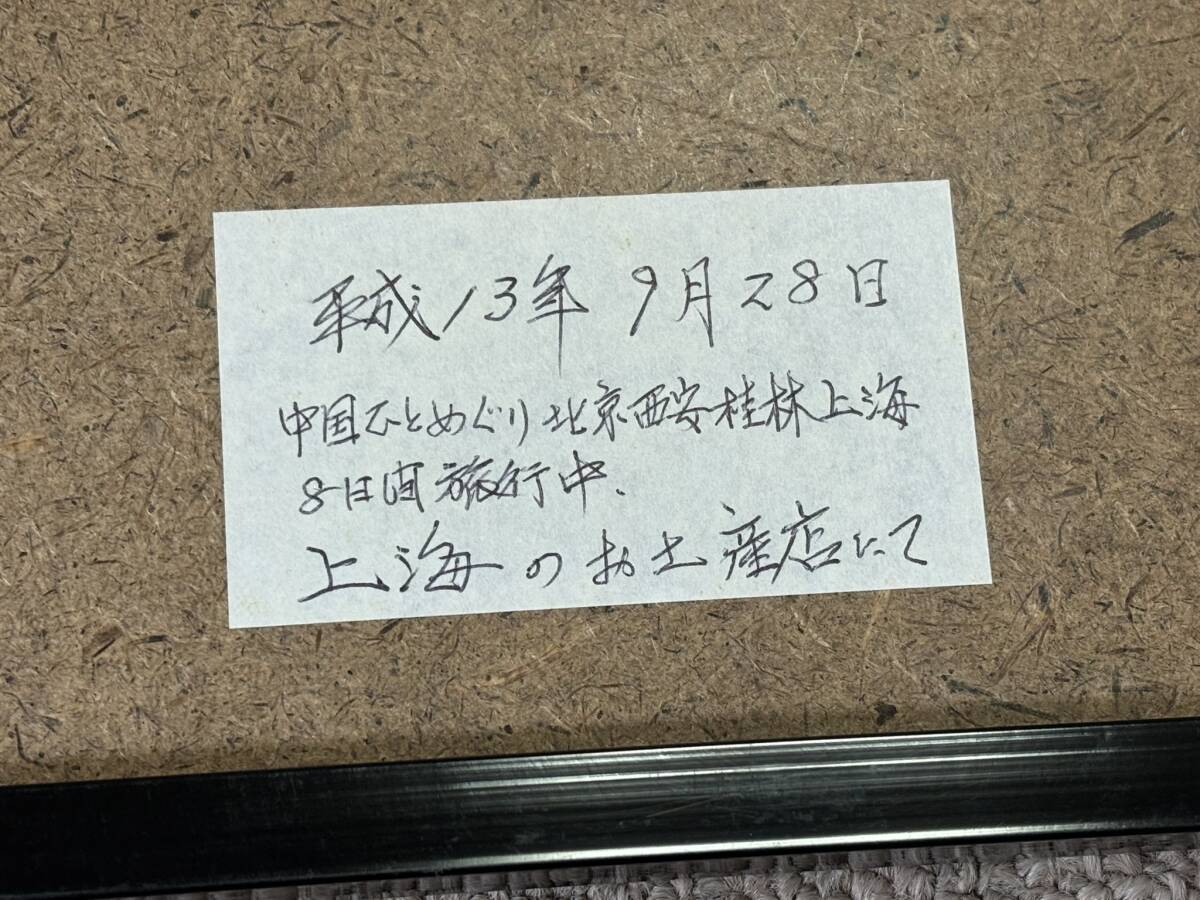 平成13年 9月28日
中国ひとめぐり北京西安桂林上海
8日間旅行中、
上海のお土産店にて